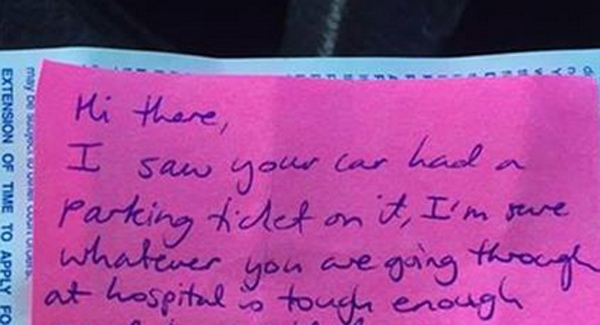 Hi there,
I saw your car had a
parking ticket on it, I'm sure
whatever you are going through
at hospital is tough enough
EXTENSION OF TIME TO APPLY FO
may be